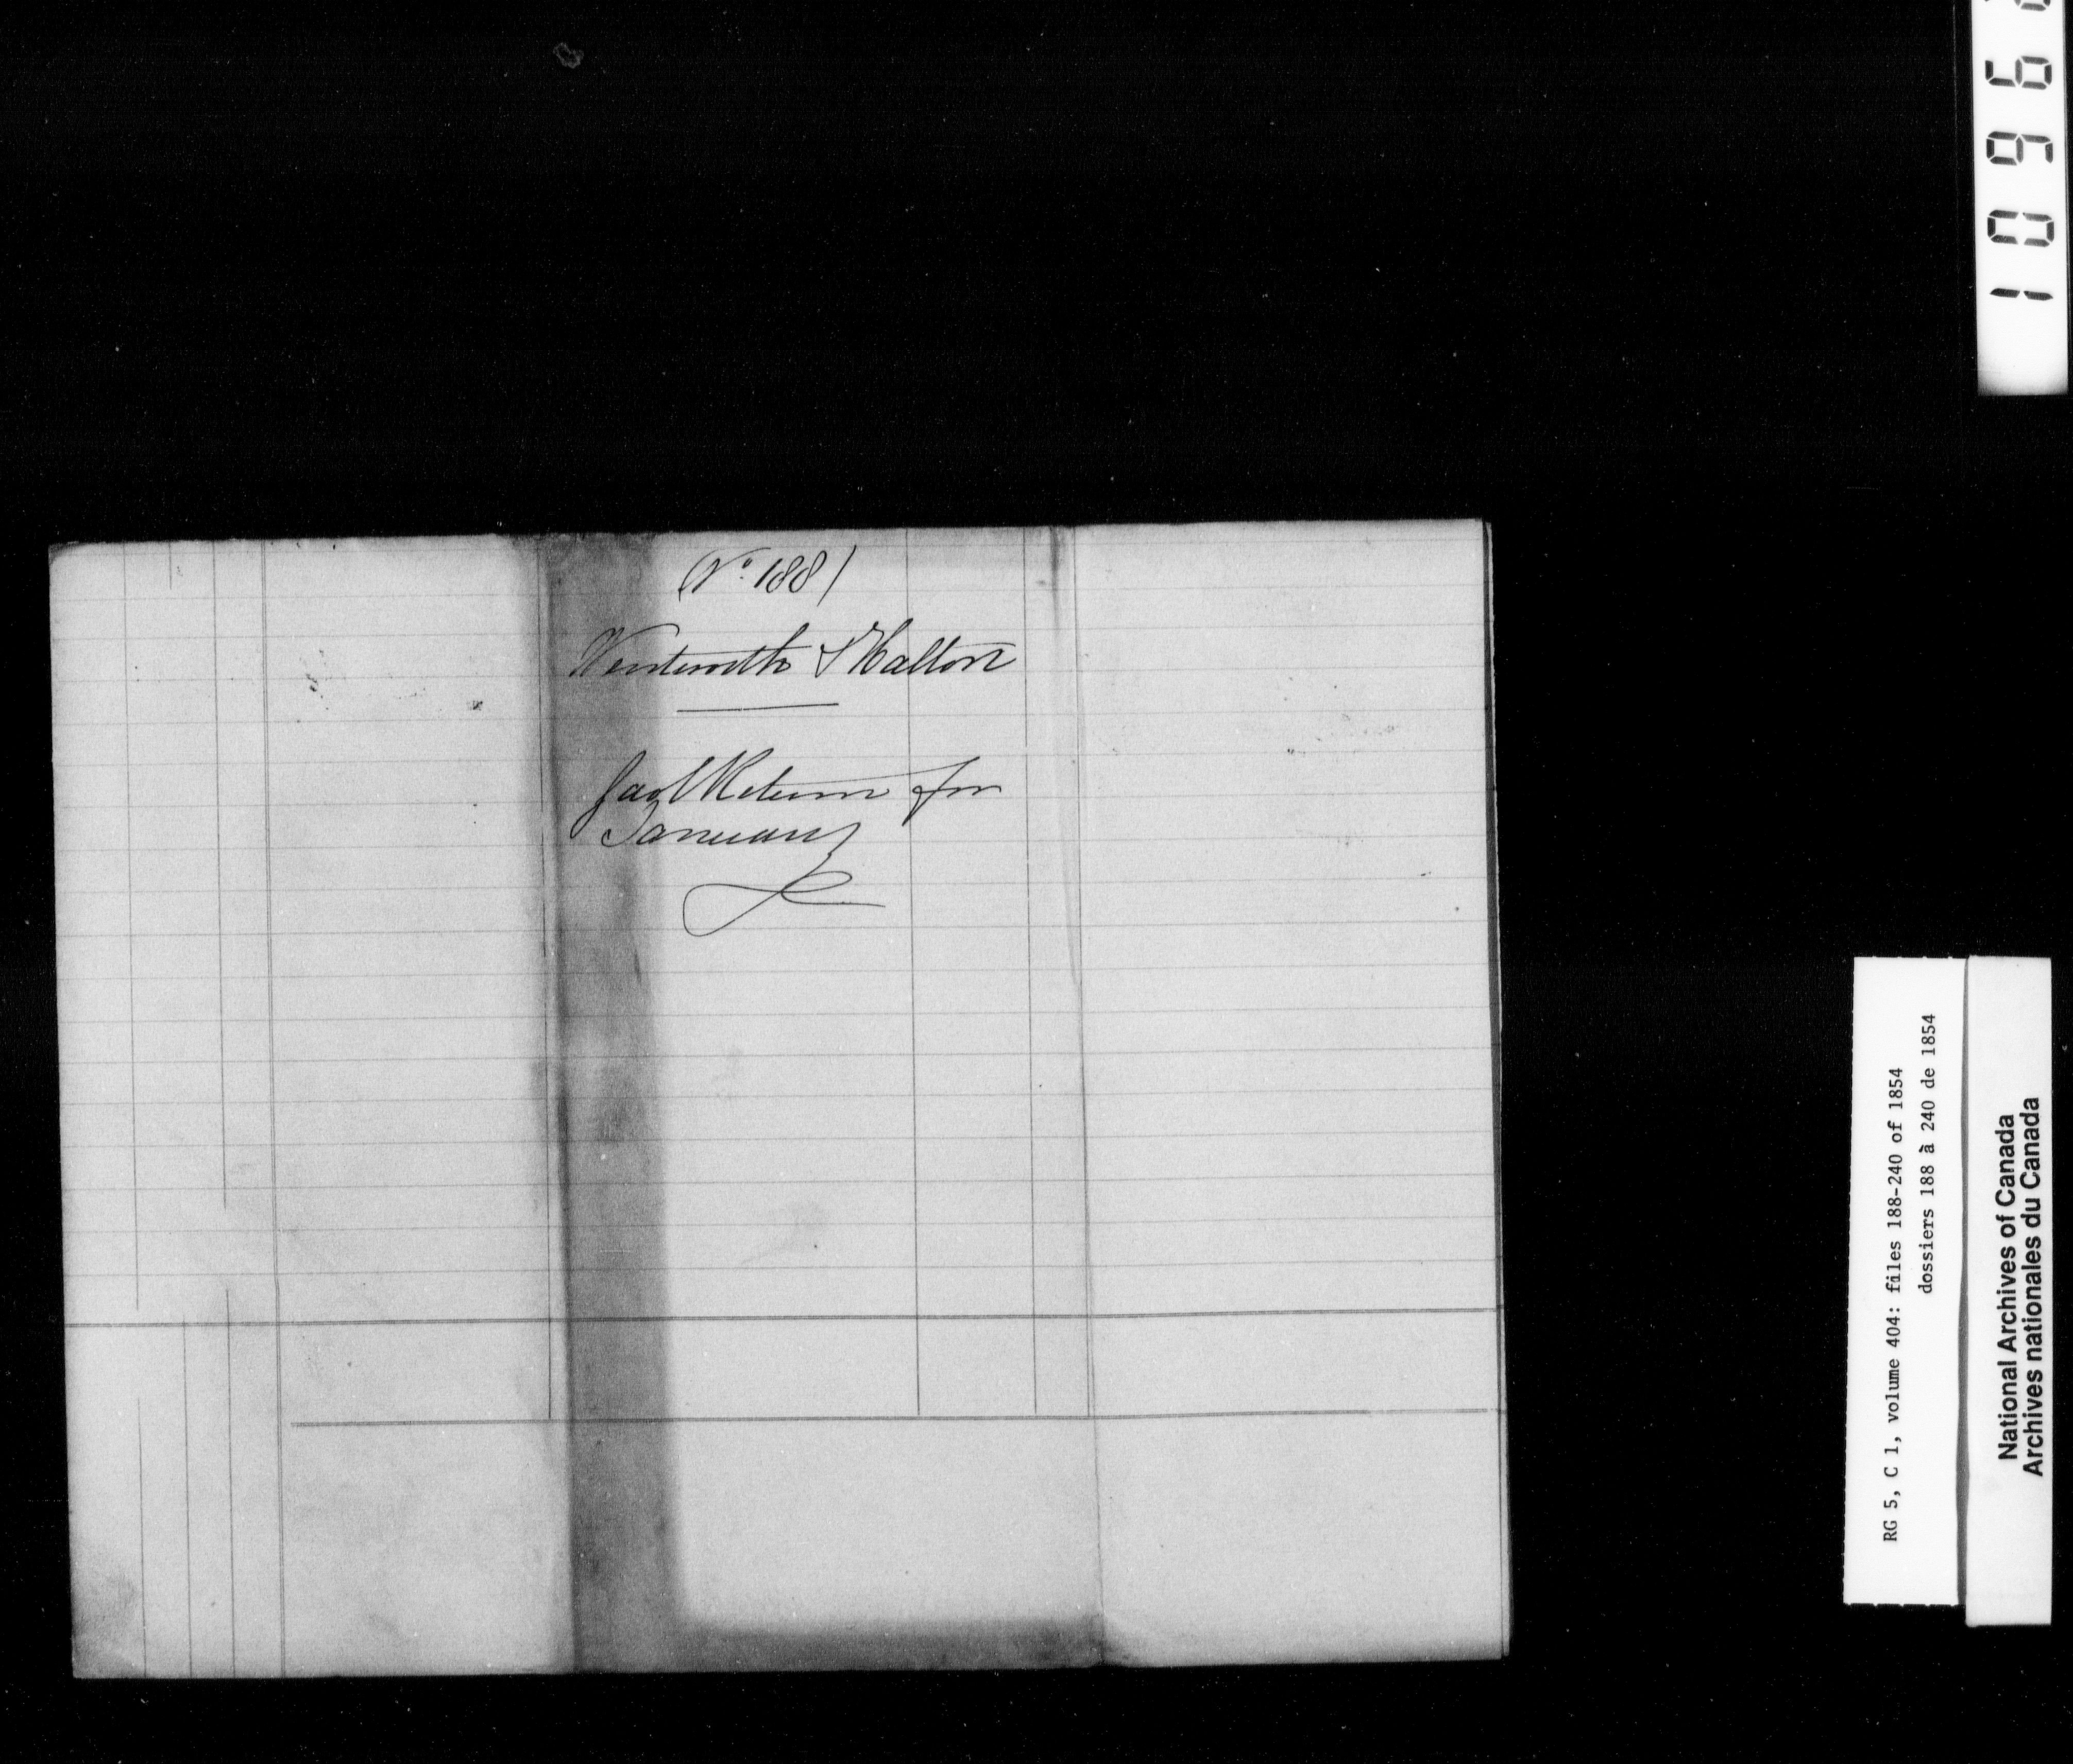 (No. 188)
Wentworth & Halton
Gaol Return for
January
RG 5, C 1, volume 404: files 188-240 of 1854
dossiers 188 à 240 de 1854
National Archives of Canada
Archives nationales du Canada